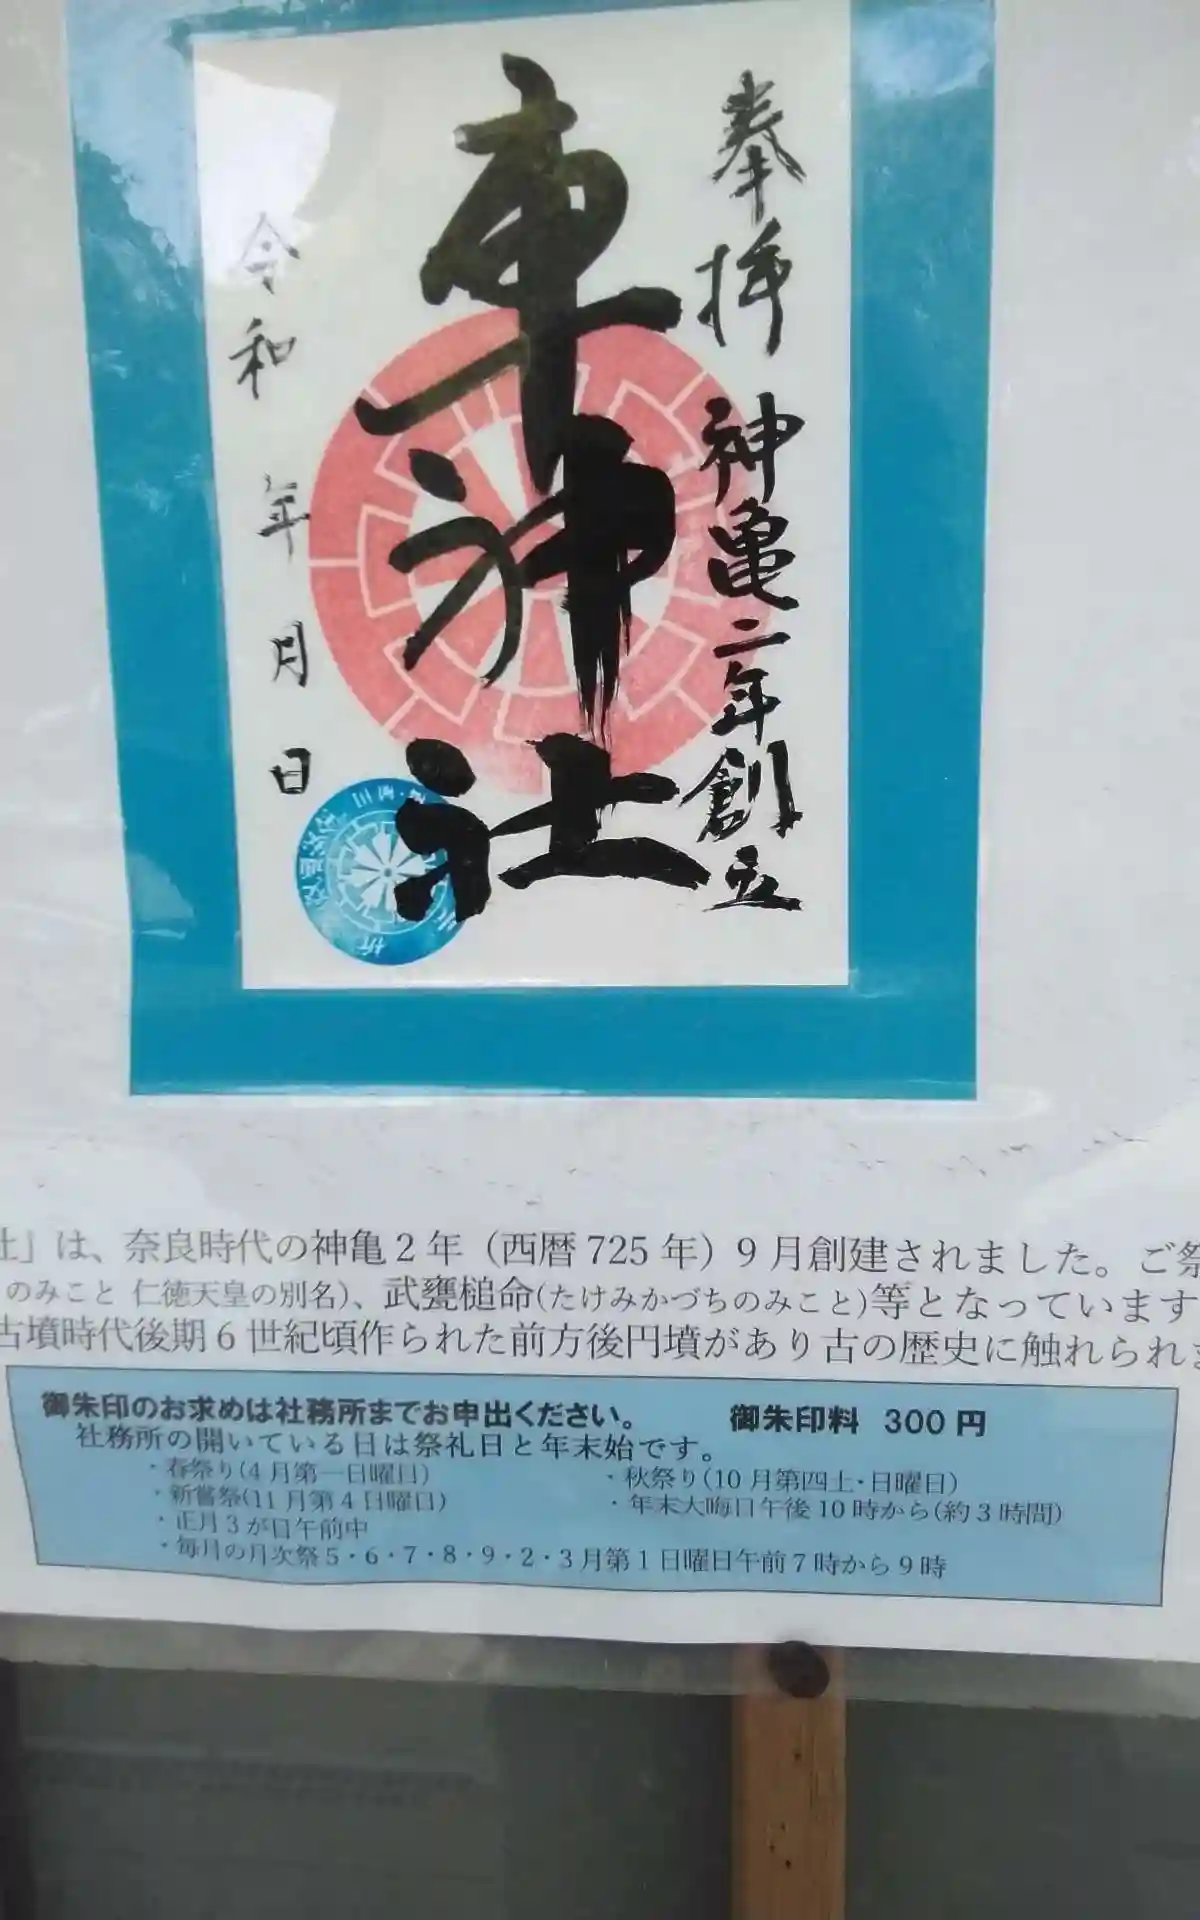 奉拝 神亀二年創立
車神社
令和 年 月 日
社」は、奈良時代の神亀2年（西暦725年）9月創建されました。ご祭
のみこと 仁徳天皇の別名)、武甕槌命(たけみかづちのみこと)等となっています
古墳時代後期6世紀頃作られた前方後円墳があり古の歴史に触れられま
御朱印のお求めは社務所までお申出ください。 御朱印料 300円
社務所の開いている日は祭礼日と年末始です。
・春祭り(4月第一日曜日) ・秋祭り(10月第四土・日曜日)
・新嘗祭(11月第4日曜日) ・年末大晦日午後10時から(約3時間)
・正月3が日午前中
・毎月の月次祭5・6・7・8・9・2・3月第1日曜日午前7時から9時